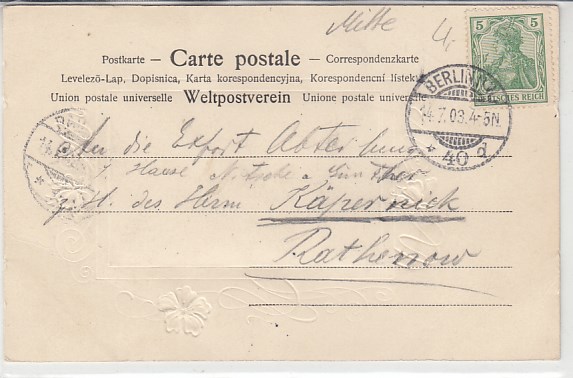 Mitte
4
5 5
DEUTSCHES REICH
Postkarte – Carte postale – Correspondenzkarte
Levelező-Lap, Dopisnica, Karta korespondencyjna, Korespondencní lístek
Union postale universelle Weltpostverein Unione postale universelle
BERLIN
14.7.03.4-5N.
* 40 d
An die Export Abteilung
d. Hause Nitsche & Günther
z. H. des Herrn Käpernick
Rathenow